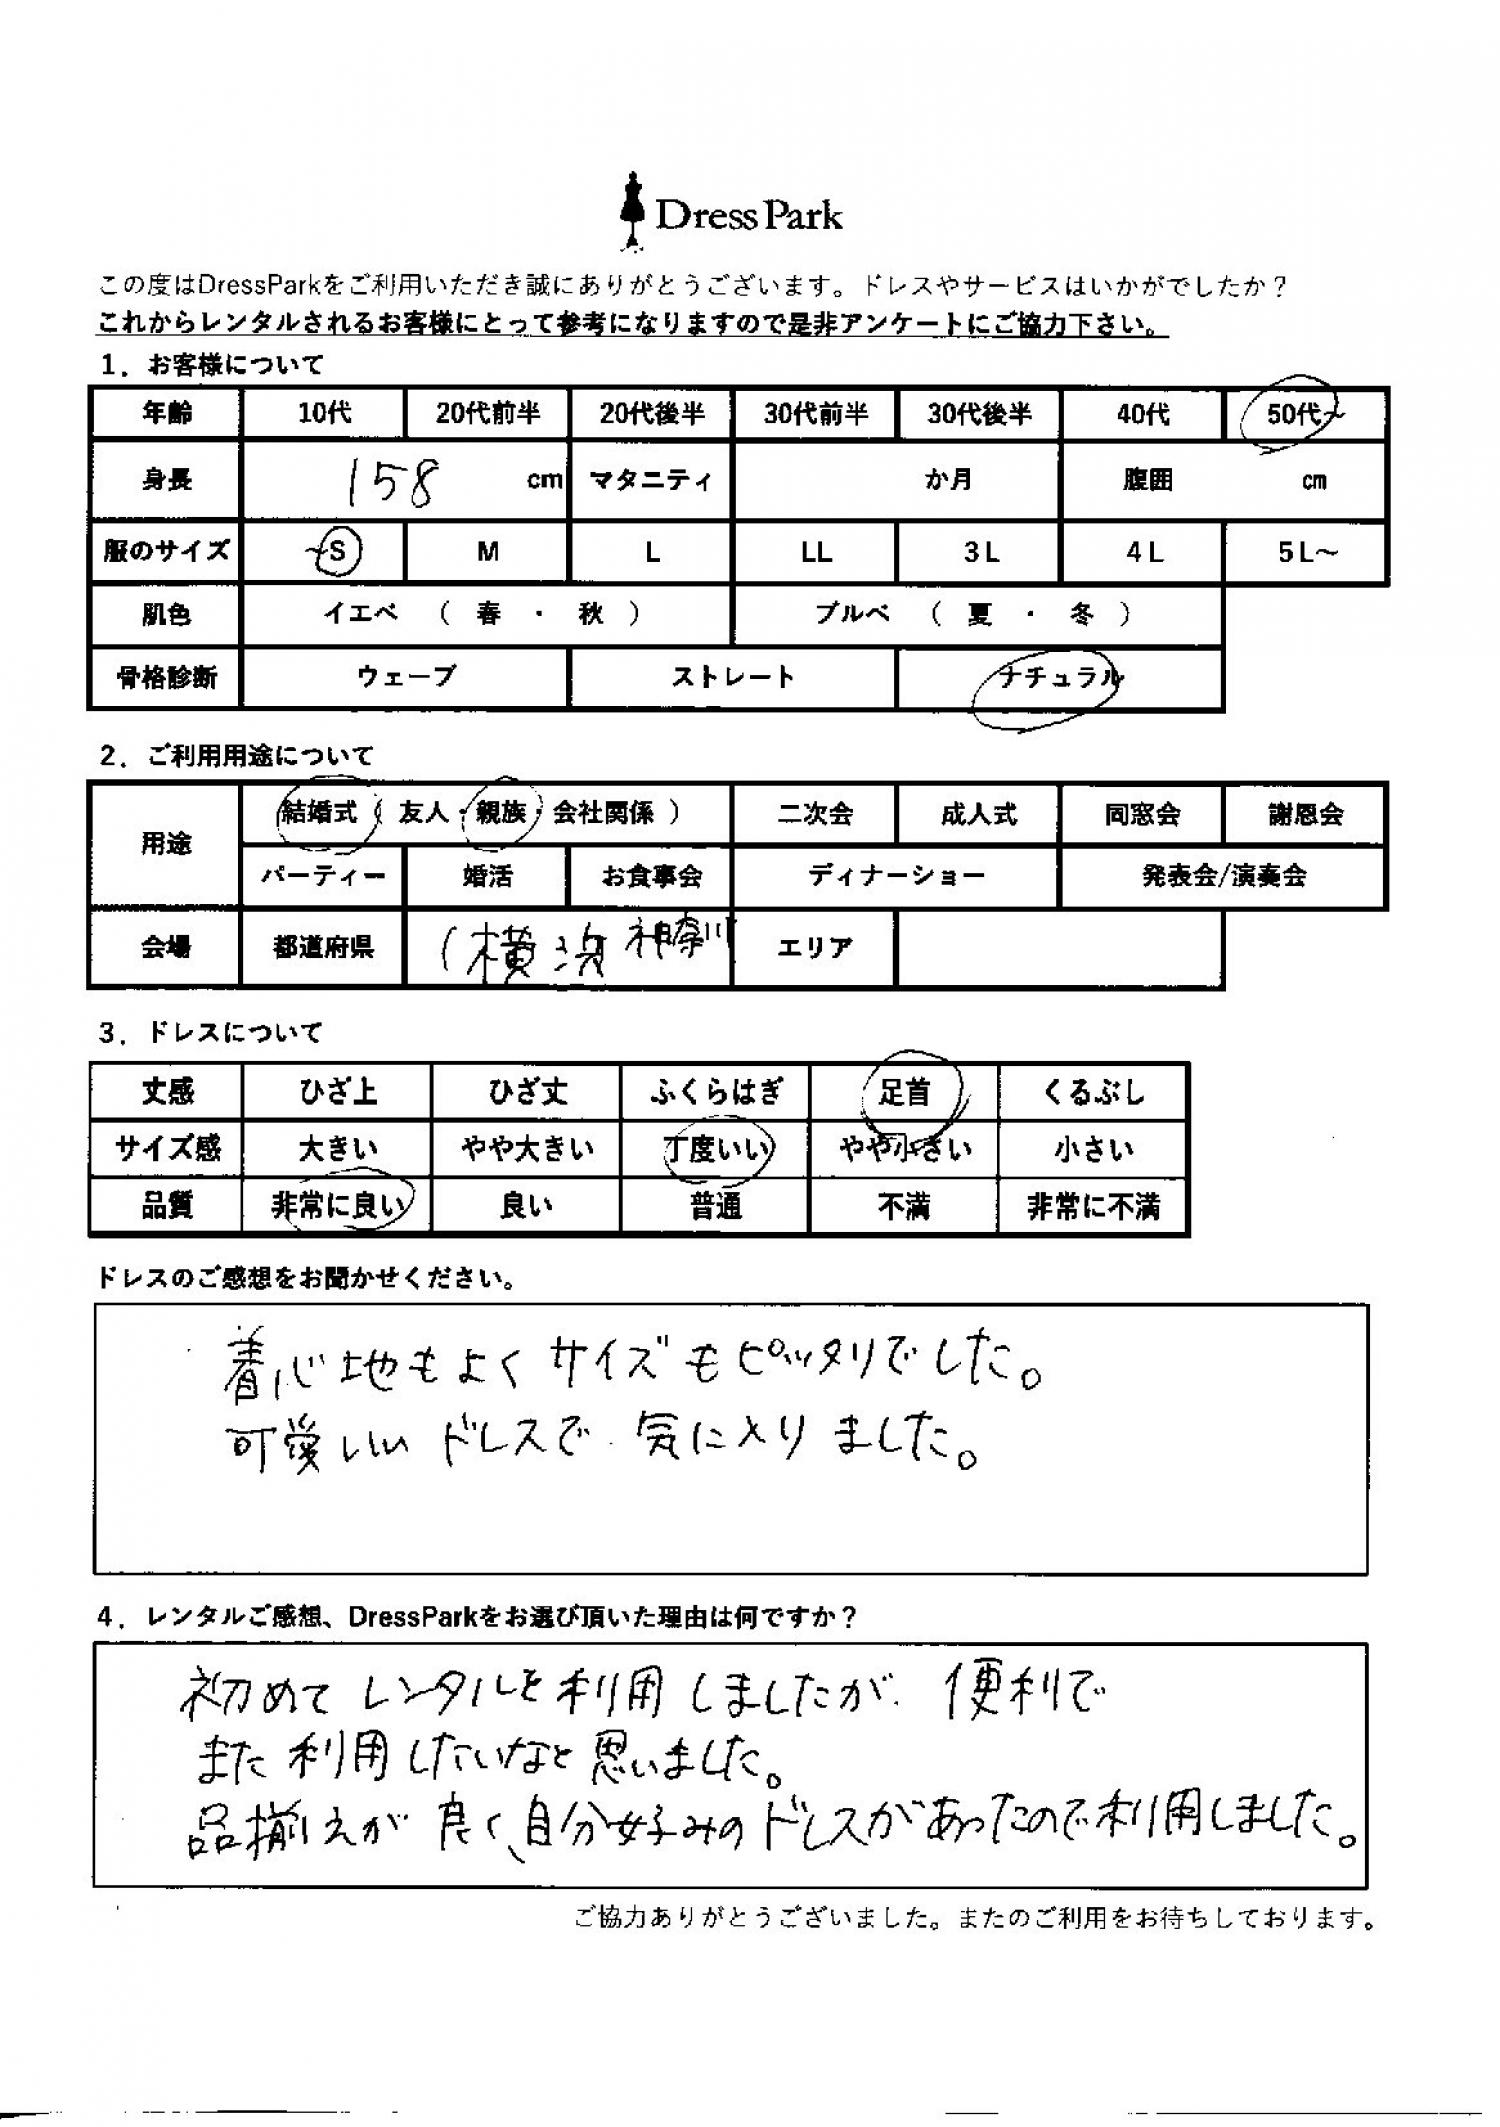 Dress Park
この度はDressParkをご利用いただき誠にありがとうございます。ドレスやサービスはいかがでしたか？
これからレンタルされるお客様にとって参考になりますので是非アンケートにご協力下さい。
1．お客様について
年齢 10代 20代前半 20代後半 30代前半 30代後半 40代 50代～
身長 158 cm マタニティ か月 腹囲 cm
服のサイズ ～S M L LL 3L 4L 5L～
肌色 イエベ （ 春 ・ 秋 ） ブルベ （ 夏 ・ 冬 ）
骨格診断 ウェーブ ストレート ナチュラル
2．ご利用用途について
用途 結婚式（ 友人・親族・会社関係 ） 二次会 成人式 同窓会 謝恩会
パーティー 婚活 お食事会 ディナーショー 発表会/演奏会
会場 都道府県 （横浜 神奈川 エリア
3．ドレスについて
丈感 ひざ上 ひざ丈 ふくらはぎ 足首 くるぶし
サイズ感 大きい やや大きい 丁度いい やや小さい 小さい
品質 非常に良い 良い 普通 不満 非常に不満
ドレスのご感想をお聞かせください。
着心地もよくサイズもピッタリでした。
可愛いいドレスで気に入りました。
4．レンタルご感想、DressParkをお選び頂いた理由は何ですか？
初めてレンタルを利用しましたが、便利で
また利用したいなと思いました。
品揃えが良く、自分好みのドレスがあったので利用しました。
ご協力ありがとうございました。またのご利用をお待ちしております。